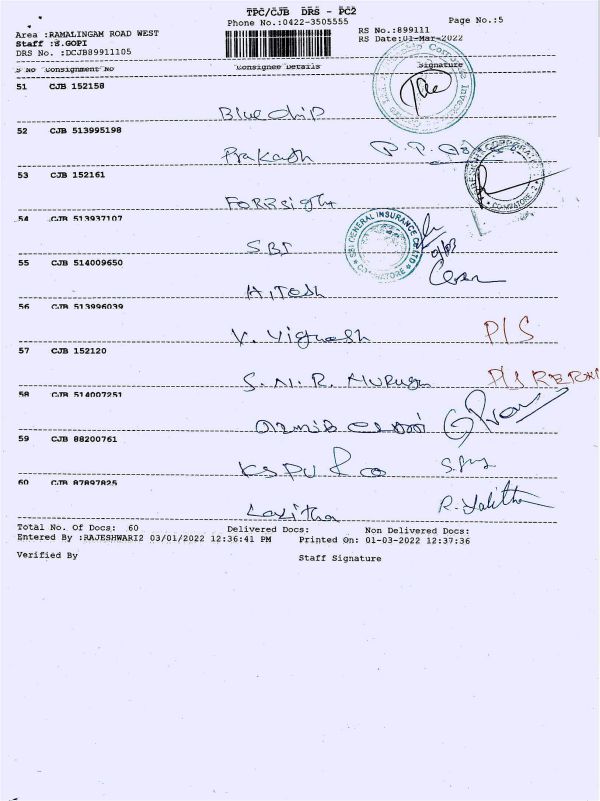 TPC/CJB DRS - PC2
Phone No.:0422-3505555 Page No.:5
Area :RAMALINGAM ROAD WEST RS No.:899111
Staff :S.GOPI RS Date:01-Mar-2022
DRS No. :DCJB89911105
S No Consignment No Consignee Details Signature
51 CJB 152158
Blue chip
52 CJB 513995198
Prakash
53 CJB 152161
54 CJB 513937107
SBI
SBI GENERAL INSURANCE CO LTD COIMBATORE
55 CJB 514009650
Hitesh
56 CJB 513996039
V. Vignesh P/S
57 CJB 152120
S.N.R. Murugan P/S
58 CJB 514007251
59 CJB 88200761
60 CJB 87897825
Lalitha R. Lalitha
Total No. Of Docs: 60 Delivered Docs: Non Delivered Docs:
Entered By :RAJESHWARI2 03/01/2022 12:36:41 PM Printed On: 01-03-2022 12:37:36
Verified By Staff Signature